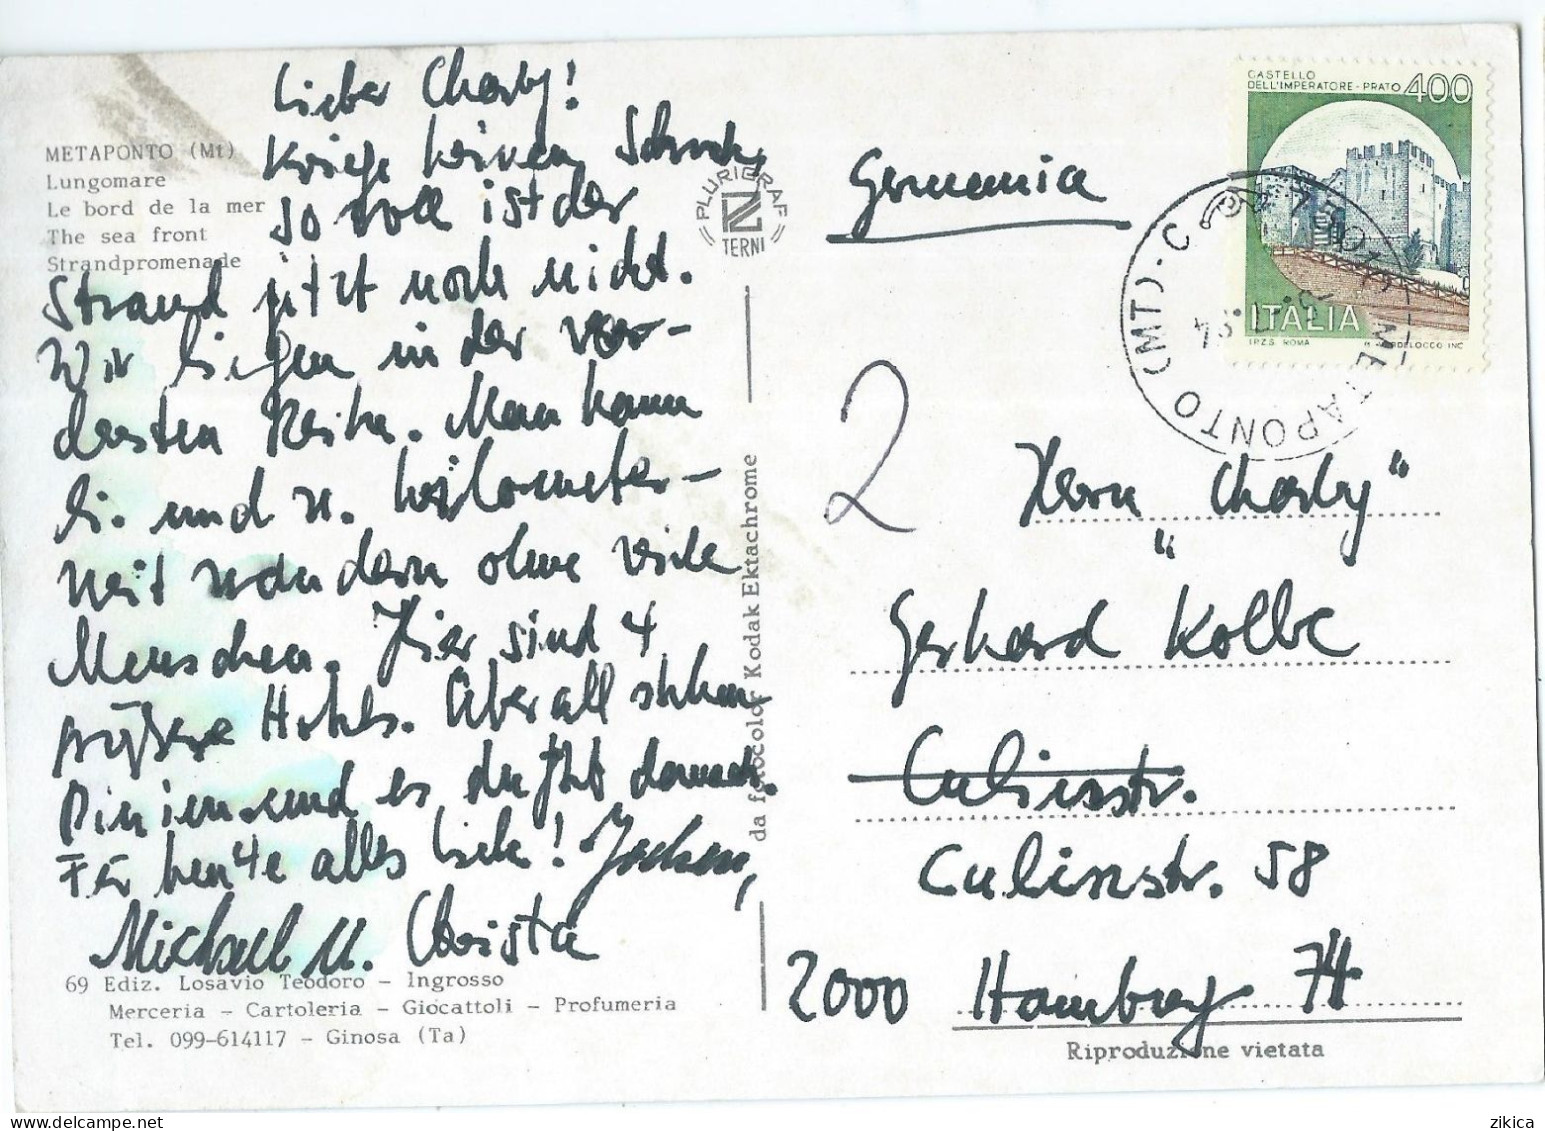 METAPONTO (Mt)
Lungomare
Le bord de la mer
The sea front
Strandpromenade
Lieber Charly!
Kriege keinen Schock,
so voll ist der
Strand jetzt noch nicht.
Wir liegen in der vor-
dersten Reihe. Man kann
li. und re. kilometer-
weit wandern ohne viele
Menschen. Hier sind 4
größere Hotels. Überall stehen
Pinien und es duftet danach.
Für heute alles Liebe! Jochen,
Michael u. Christa
69 Ediz. Losavio Teodoro - Ingrosso
Merceria - Cartoleria - Giocattoli - Profumeria
Tel. 099-614117 - Ginosa (Ta)
PLURIGRAF
TERNI
da fotocolor Kodak Ektachrome
CASTELLO
DELL'IMPERATORE - PRATO 400
ITALIA
I.P.Z.S. ROMA
INC
75010 METAPONTO (MT) - C
Germania
2
Herrn "Charly"
Gerhard Kolbe
Culinstr.
Culinstr. 58
2000 Hamburg 74
Riproduzione vietata
zikica